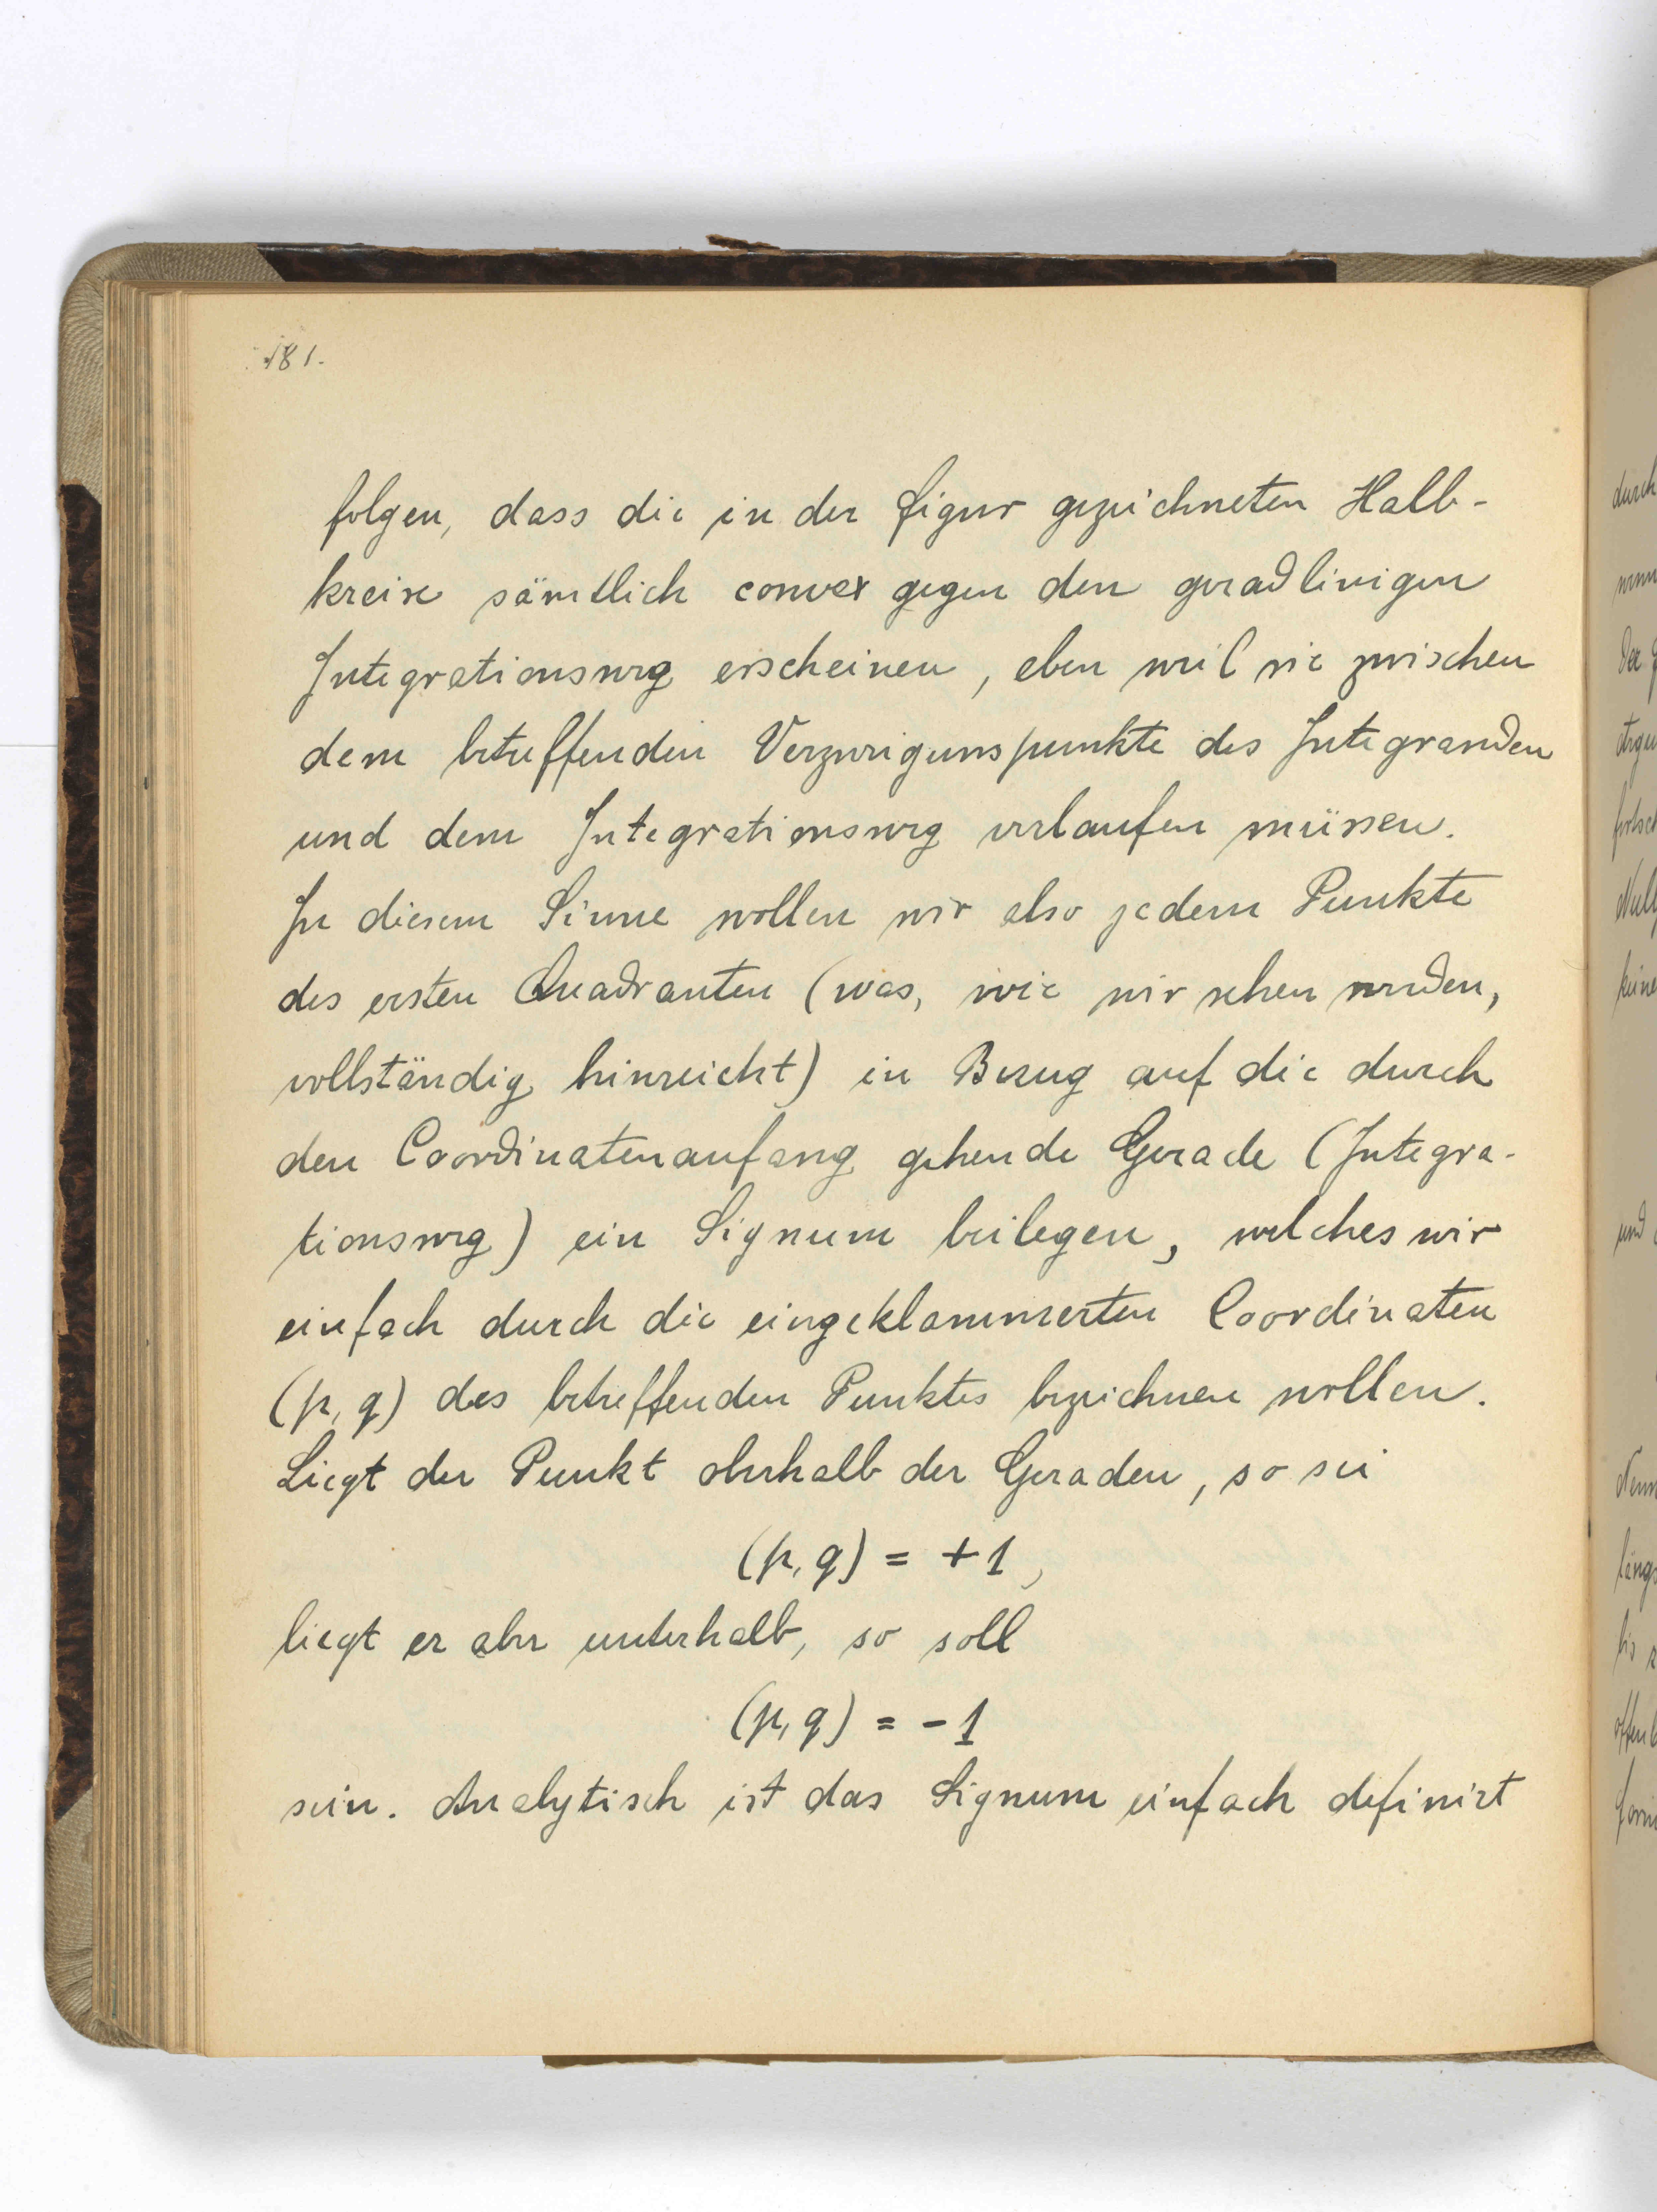 181.
folgen, dass die in der Figur gezeichneten Halb-
kreise sämtlich convex gegen den geradlinigen
Integrationsweg erscheinen, eben weil sie zwischen
dem betreffenden Verzweigunspunkte des Integranden
und dem Integrationsweg verlaufen müssen.
In diesem Sinne wollen wir also jedem Punkte
des ersten Quadranten (was, wie wir sehen werden,
vollständig hinreicht) in Bezug auf die durch
den Coordinatenanfang gehende Gerade (Integra-
tionsweg) ein Signum beilegen, welches wir
einfach durch die eingeklammerten Coordinaten
(p, q) des betreffenden Punktes bezeichnen wollen.
Liegt der Punkt oberhalb der Geraden, so sei
(p, q) = +1,
liegt er aber unterhalb, so soll
(p, q) = -1
sein. Analytisch ist das Signum einfach definirt
durch
der
und